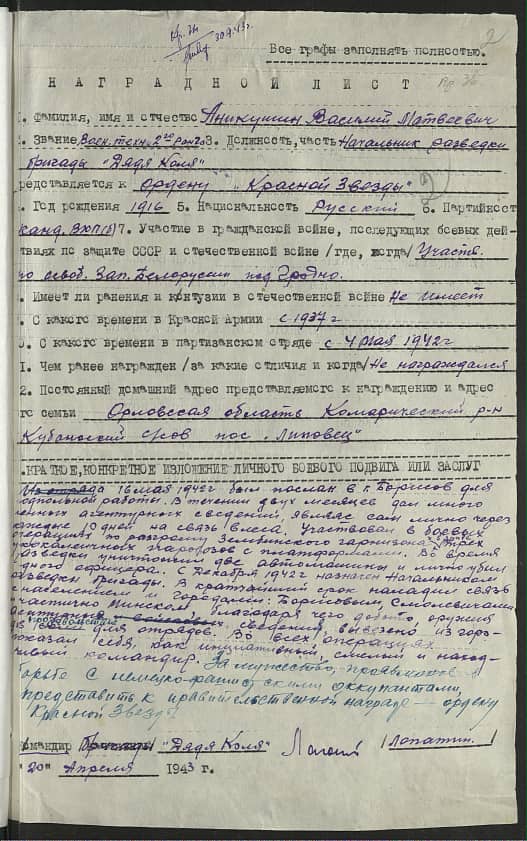 30.9.43г. 2
Все графы заполнять полностью.
НАГРАДНОЙ ЛИСТ
1. Фамилия, имя и отчество Аникушин Василий Матвеевич
2. Звание Воен. техн. 2го ранга 3. Должность, часть Начальник разведки
бригады "Дядя Коля"
редставляется к ордену "Красной Звезды"
. Год рождения 1916 5. Национальность Русский 6. Партийност
канд. ВКП(б) 7. Участие в гражданской войне, последующих боевых дей-
твиях по защите СССР и отечественной войне /где, когда/ Участв.
по освоб. Зап. Белоруссии под Гродно.
. Имеет ли ранения и контузии в отечественной войне Не имеет
. С какого времени в Красной Армии с 1937 г
0. С какого времени в партизанском отряде с 4 мая 1942 г
1. Чем ранее награжден /за какие отличия и когда/ Не награждался
2. Постоянный домашний адрес представляемого к награждению и адрес
го семьи Орловская область Комарический р-н
пос. "Липовец"
.КРАТКОЕ,КОНКРЕТНОЕ ИЗЛОЖЕНИЕ ЛИЧНОГО БОЕВОГО ПОДВИГА ИЛИ ЗАСЛУГ
16 мая 1942 г был послан в г. Борисов для
подпольной работы. В течении двух месяцев дал много
ценных агентурных сведений, являясь сам лично через
каждые 10 дней на связь в леса. Участвовал в боевых
операциях по разгрому Зембинского гарнизона,
с платформами. Во время
разведки уничтожил две автомашины и лично убил
дного офицера. С декабря 1942 г назначен Начальником
разведки бригады. В кратчайший срок наладил связь
с населением и городами: Борисовым, Смолевичами
и частично Минском, благодаря чего добыто, оружия
сведения, вывезено из горо-
для отрядов. Во всех операциях
показал себя, как инициативный, смелый и наход-
чивый командир. За мужество, проявленное в
борьбе с немецко-фашистскими оккупантами,
представить к правительственной награде — ордену
"Красной Звезды".
омандир бригады "Дядя Коля" /Лопатин./
"20" Апреля 1943 г.